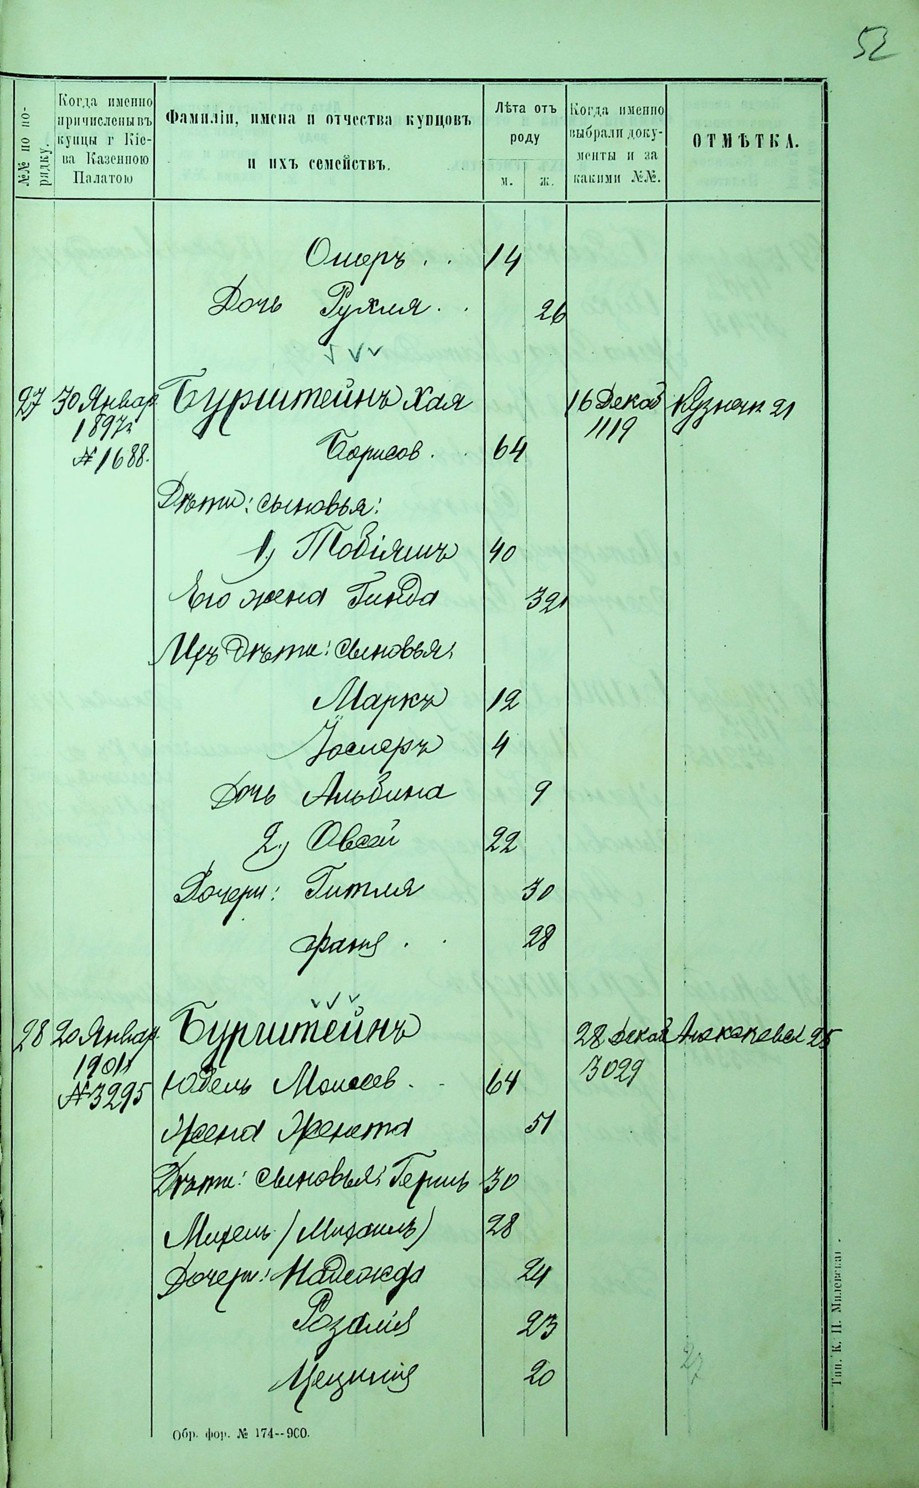 52
№№ по порядку.
Когда именно причислены въ купцы г Кіева Казенною Палатою
Фамиліи, имена и отчества купцовъ и ихъ семействъ.
Лѣта отъ роду
м. ж.
Когда именно выбрали документы и за какими №№.
ОТМѢТКА.
Ошеръ . . 14
Дочь Рухля . . 26
27 30 Январ Бурштейнъ Хая 16 Декаб Кузнечн 21
1897 1119
№ 1688. Борисов. . 64
Дѣти: сыновья:
1) Товіяшъ 40
Его жена Гинда 32
Ихъ дѣти: сыновья:
Маркъ 12
Іосперъ 4
Дочь Альвина 9
2) Овсей 22
Дочери: Гитля 30
Фаня . . 28
28 20 Январ Бурштейнъ 28 декаб 25
1901 3029
№ 3295 Юдель Моисеев . . 64
Жена Женета 51
Дѣти: сыновья: Гершъ 30
Михель (Михаилъ) 28
Дочери: Надежда 24
Розалія 23
Цецилія 20
27
Обр. фор. № 174--900.
Тип. К. П. Милевска